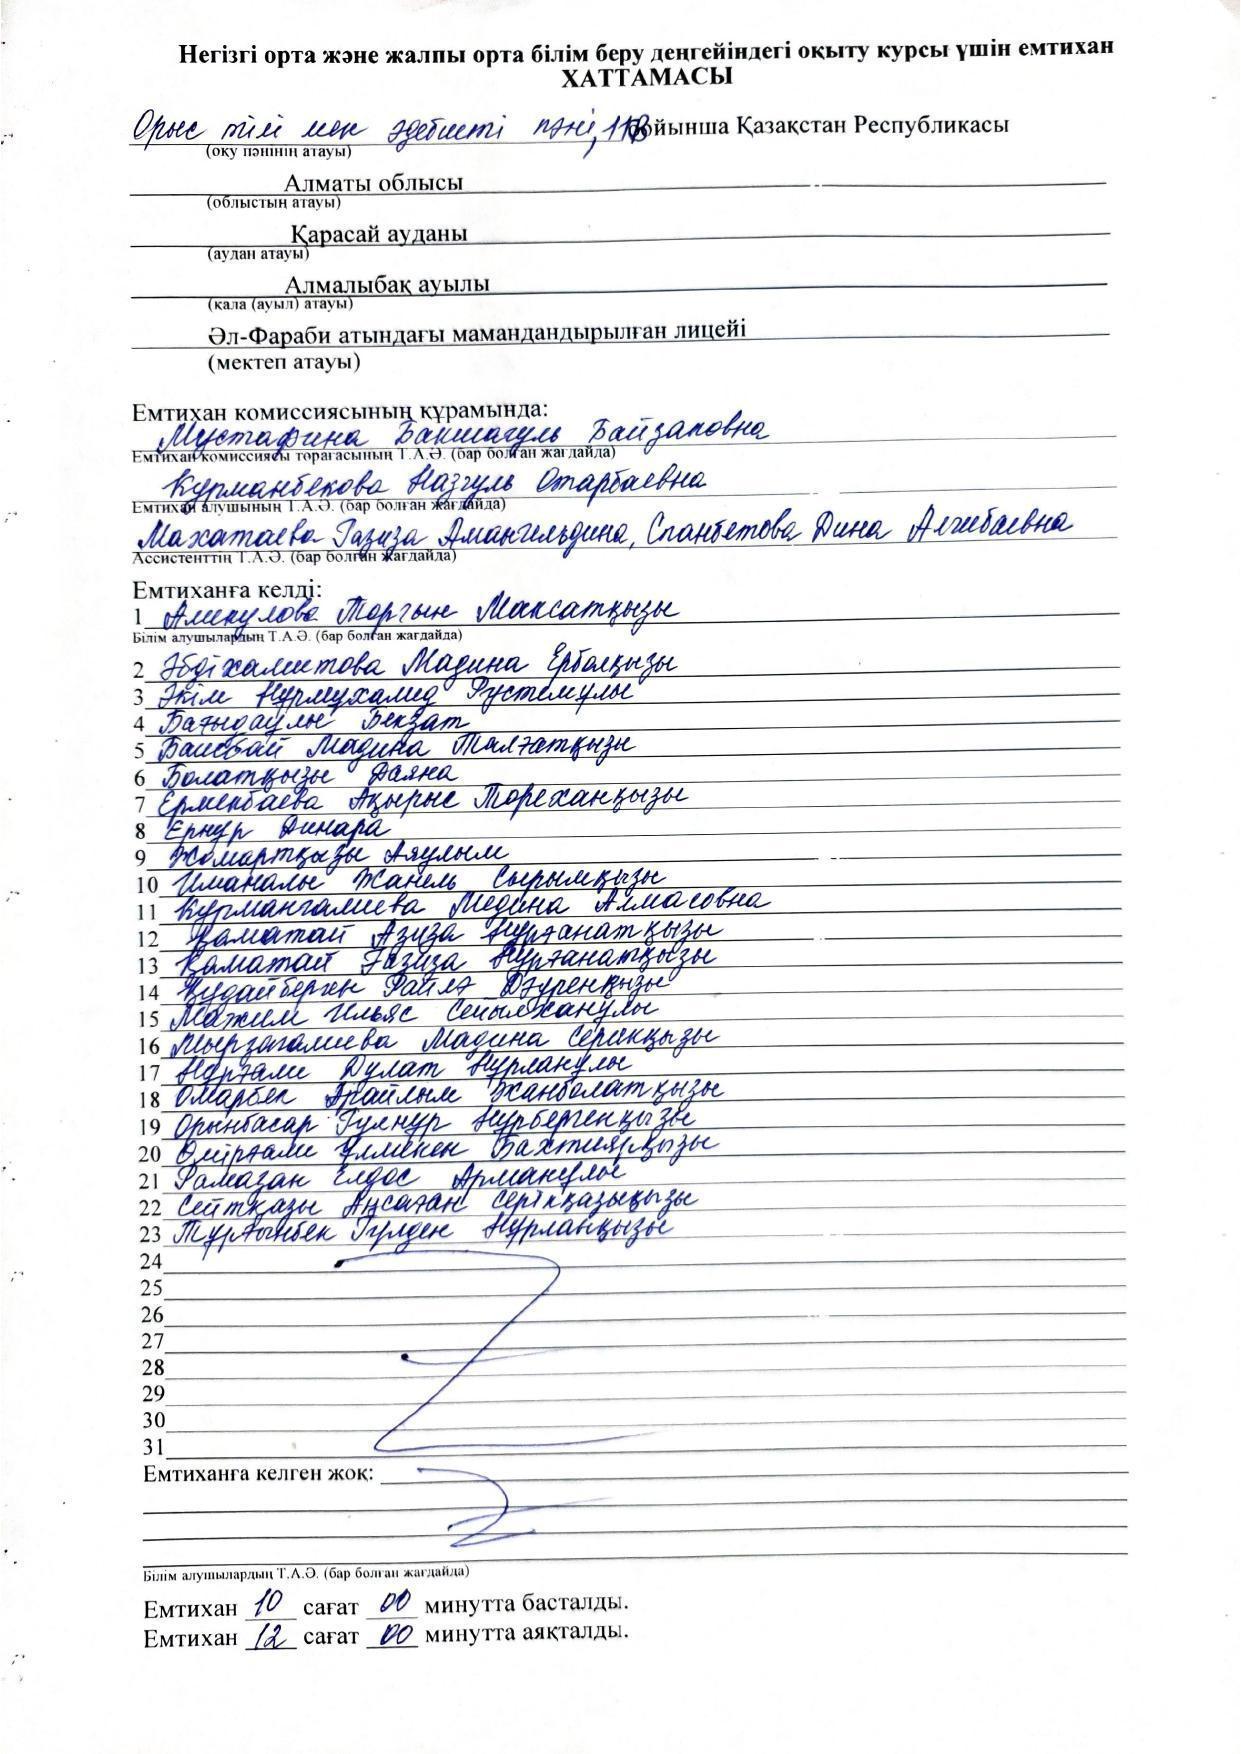 Негізгі орта және жалпы орта білім беру деңгейіндегі оқыту курсы үшін емтихан
ХАТТАМАСЫ
Орыс тілі мен әдебиеті пәні, 11В бойынша Қазақстан Республикасы
(оқу пәнінің атауы)
Алматы облысы
(облыстың атауы)
Қарасай ауданы
(аудан атауы)
Алмалыбақ ауылы
(қала (ауыл) атауы)
Әл-Фараби атындағы мамандандырылған лицейі
(мектеп атауы)
Емтихан комиссиясының құрамында:
Мустафина Бакшагуль Байзаповна
Емтихан комиссиясы төрағасының Т.А.Ә. (бар болған жағдайда)
Курманбекова Назгуль Отарбаевна
Емтихан алушының Т.А.Ә. (бар болған жағдайда)
Махатаева Газиза Амангельдина, Спанбетова Дина Алчибаевна
Ассистенттің Т.А.Ә. (бар болған жағдайда)
Емтиханға келді:
1 Аликулова Торғын Максатқызы
Білім алушылардың Т.А.Ә. (бар болған жағдайда)
2 Әбдіхамитова Мадина Ерболқызы
3 Әкім Нұрмұхамид Рустемұлы
4 Бағыдаулы Бекзат
5 Баисбай Мадина Талғатқызы
6 Болатқызы Даяна
7 Ерменбаева Ақырыс Тореханқызы
8 Ернұр Динара
9 Жомартқызы Аяулым
10 Иманалы Жанель Сырымқызы
11 Курмангалиева Медина Алмасовна
12 Қаматай Азиза Нұрғанатқызы
13 Қаматай Ғазиза Нұрғанатқызы
14 Құдайберген Райлә Дәуренқызы
15 Мажим Ильяс Сейылханұлы
16 Мырзагалиева Мадина Серикқызы
17 Нұрғали Дулат Нұрланұлы
18 Омарбек Арайлым Жанболатқызы
19 Орынбасар Гулнұр Нұрбергенқызы
20 Өмірғали Үлмекен Бахтиярқызы
21 Рамазан Елдос Арманұлы
22 Сейтқазы Аңсаған Серікқазықызы
23 Тұрғынбек Гүлден Нұрланқызы
24
25
26
27
28
29
30
31
Емтиханға келген жоқ:
Білім алушылардың Т.А.Ә. (бар болған жағдайда)
Емтихан 10 сағат 00 минутта басталды.
Емтихан 12 сағат 00 минутта аяқталды.